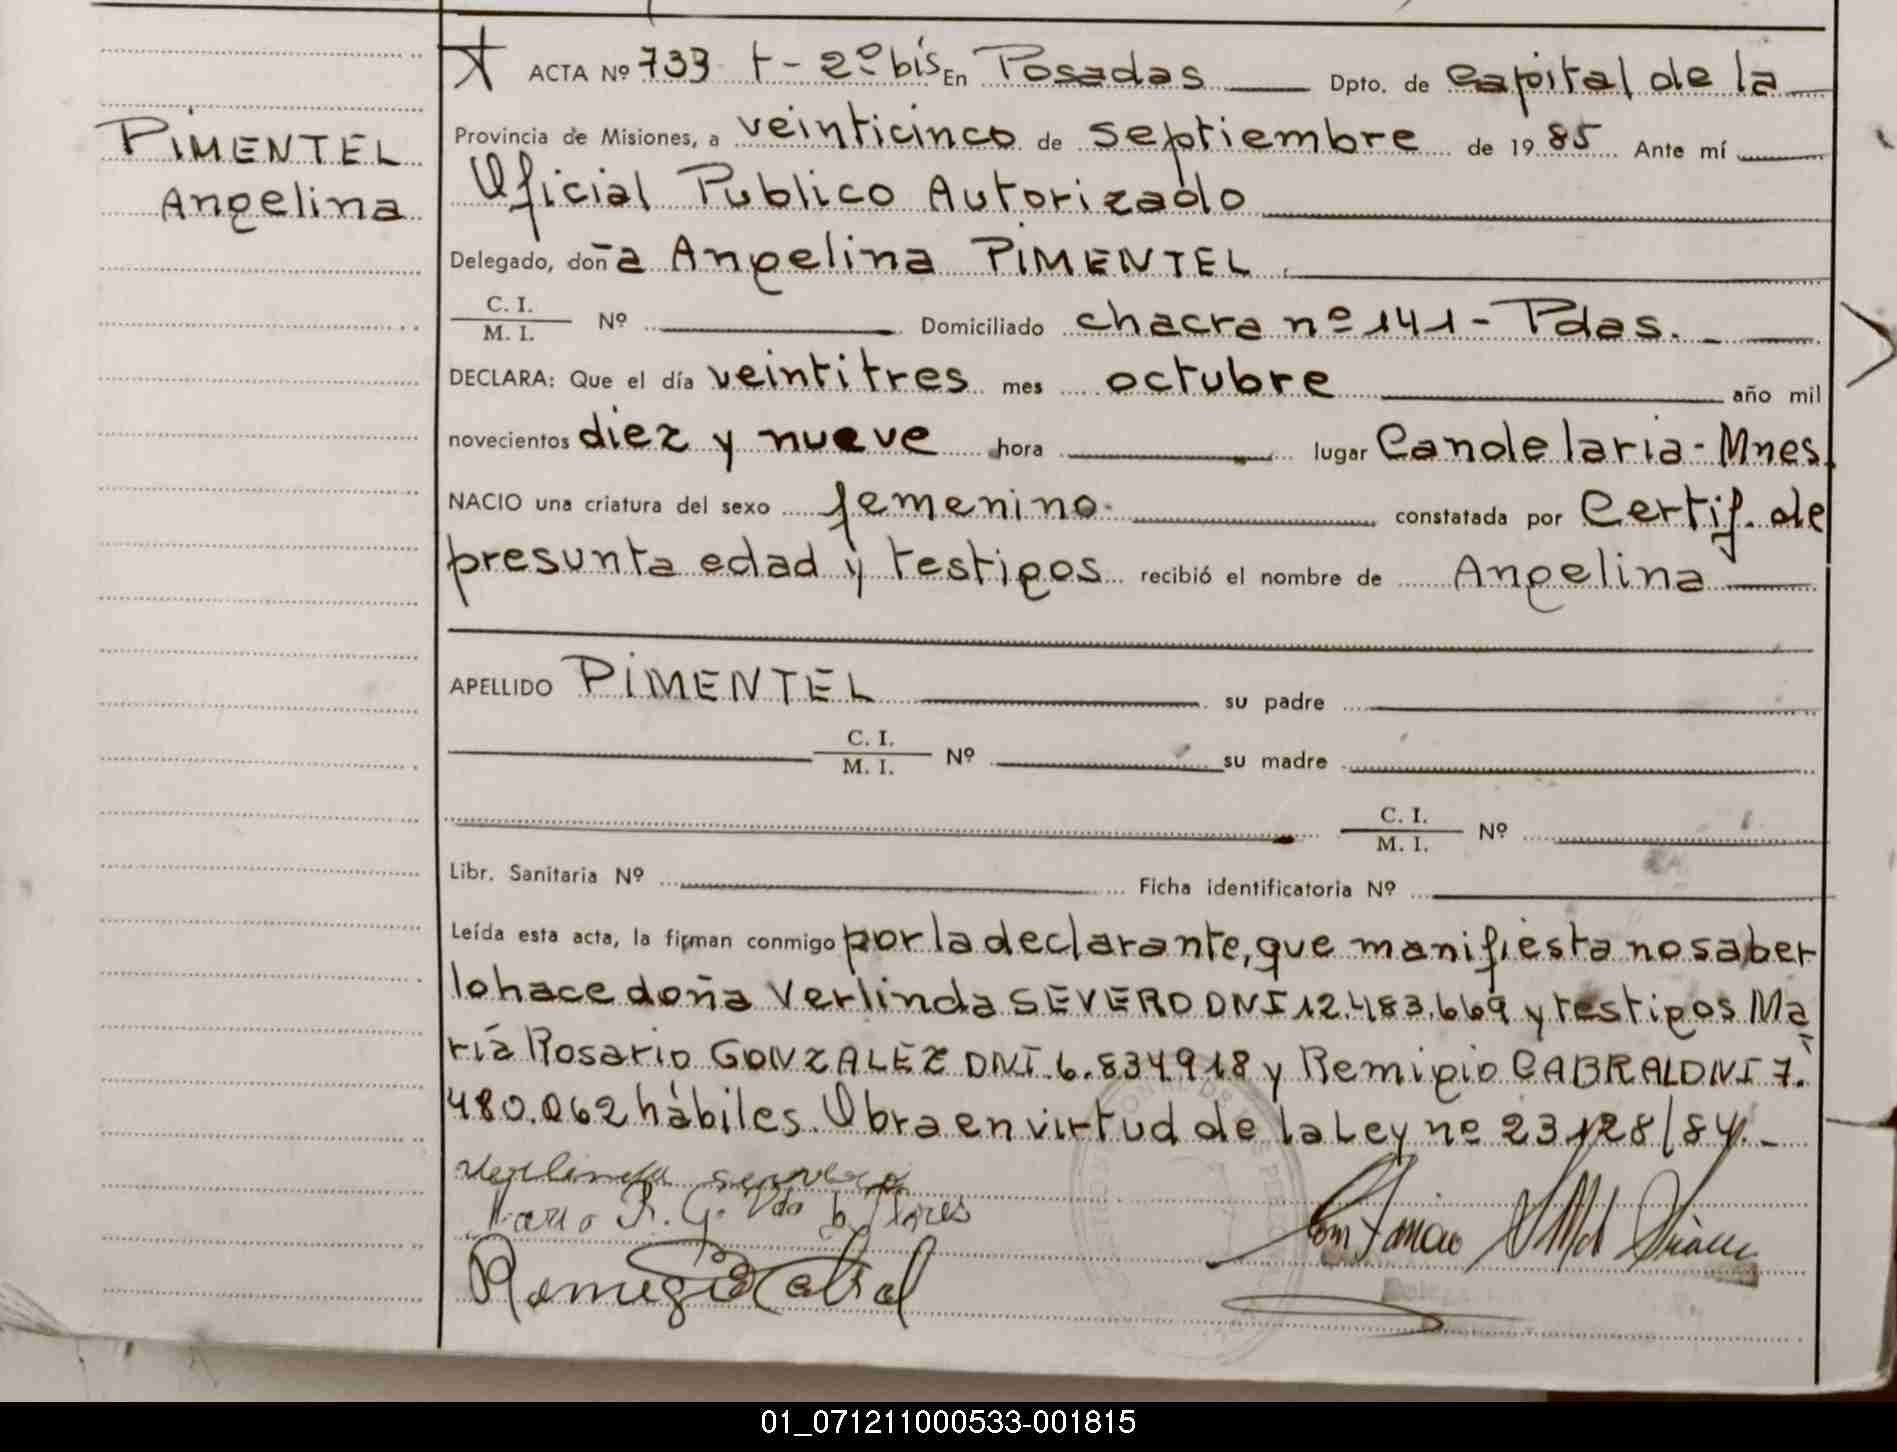 PIMENTEL
Angelina
ACTA Nº 733 t - 2º bis En Posadas Dpto. de Capital de la
Provincia de Misiones, a veinticinco de septiembre de 1985 Ante mí
Oficial Publico Autorizado
Delegado, doña Angelina PIMENTEL
C. I.
M. I. Nº Domiciliado chacra nº 141 - Pdas.
DECLARA: Que el día veintitres mes octubre año mil
novecientos diez y nueve hora lugar Candelaria - Mnes
NACIO una criatura del sexo femenino constatada por Certif. de
presunta edad y testigos recibió el nombre de Angelina
APELLIDO PIMENTEL su padre
C. I.
M. I. Nº su madre
C. I.
M. I. Nº
Libr. Sanitaria Nº Ficha identificatoria Nº
Leída esta acta, la firman conmigo por la declarante, que manifiesta no saber
lo hace doña Verlinda SEVERO DNI 12.483.669 y testigos Ma
ría Rosario GONZALEZ DNI. 6.834.918 y Remigio CABRAL DNI 7.
480.062 hábiles. Obra en virtud de la Ley nº 23128/84. -
Verlinda severo
Maria R. G. Vda
Remegio Cabral
01_071211000533-001815